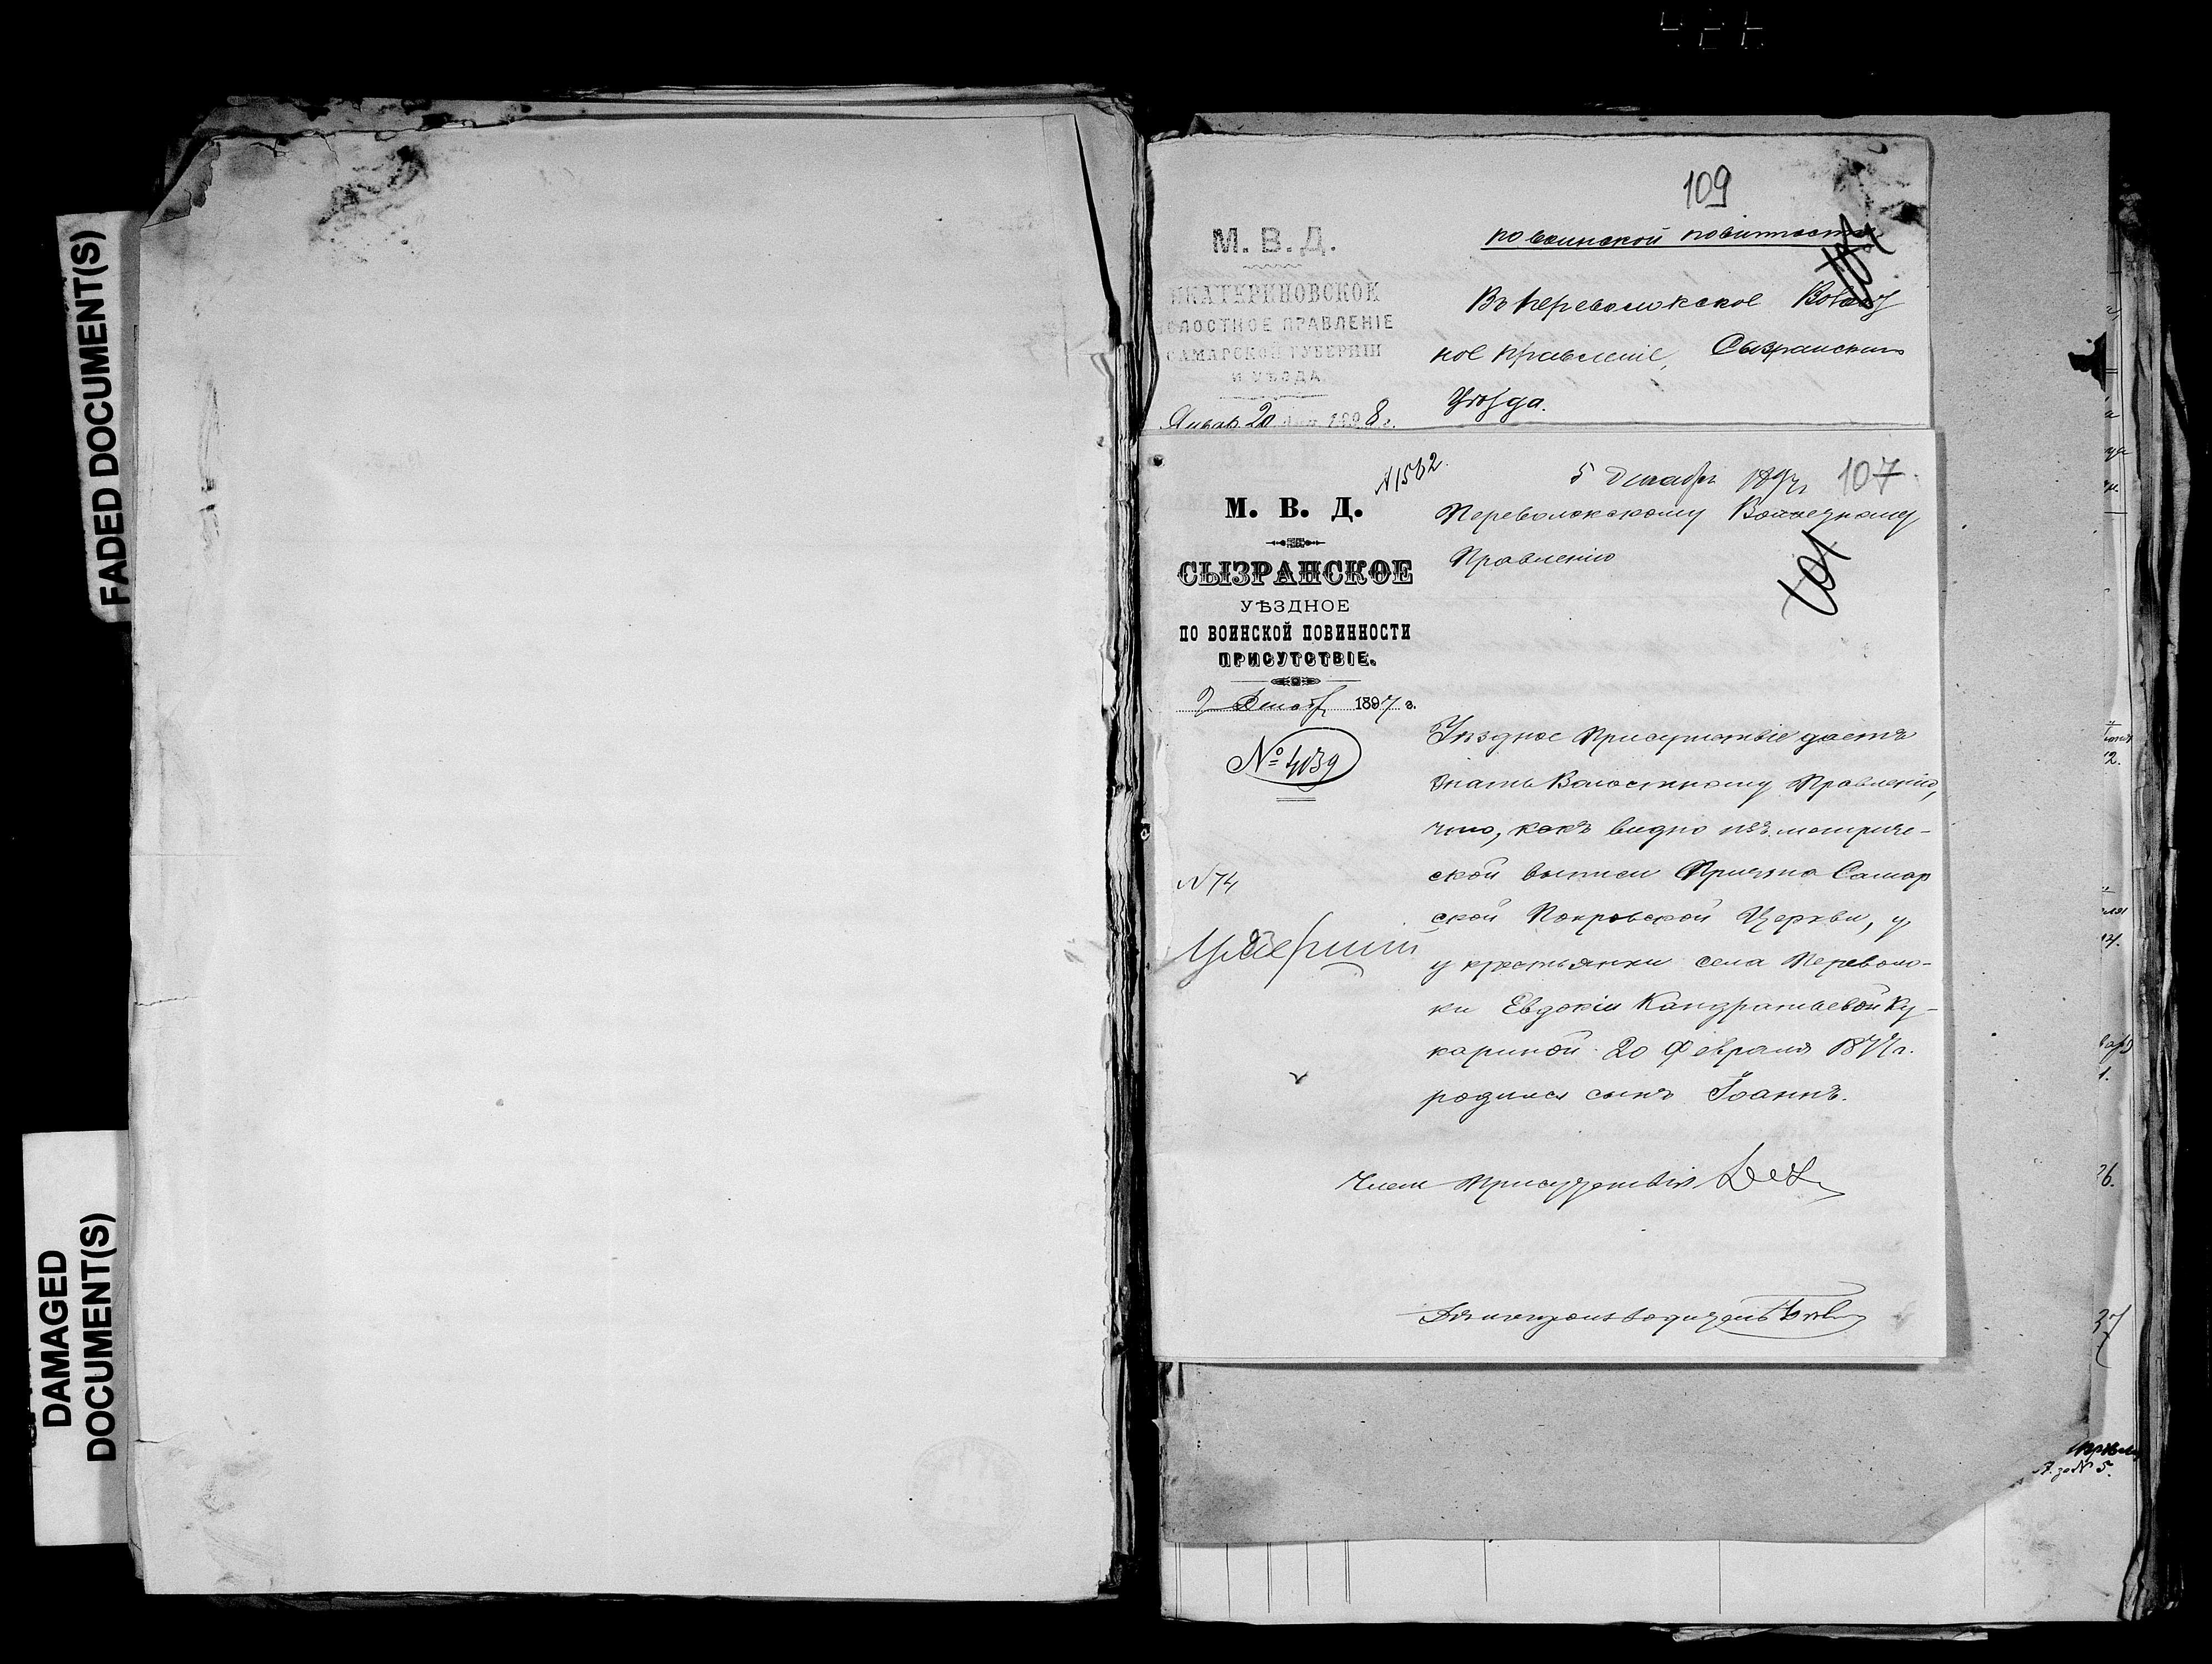 FADED DOCUMENT(S)
DAMAGED
DOCUMENT(S)
109
М. В. Д.
ЕКАТЕРИНОВСКОЕ
ВОЛОСТНОЕ ПРАВЛЕНІЕ
САМАРСКОЙ ГУБЕРНІИ
И УѢЗДА
Январ 20 дня 1898 г.
по воинской повинности
Въ Переволокское Волост
ное Правленіе, Сызранскаго
Уѣзда.
№ 1562
5 Декабря 1897 г. 107
М. В. Д.
СЫЗРАНСКОЕ
УѢЗДНОЕ
ПО ВОИНСКОЙ ПОВИННОСТИ
ПРИСУТСТВІЕ.
2 Декабр 1897 г.
№ 4039
№ 74
Умершій
Переволокскому Волостному
Правленію
101
Уѣздное Присутствіе даетъ
знать Волостному Правленію,
что, какъ видно изъ метриче-
ской выписи Причта Самар
ской Покровской Церкви, у
у крестьянки села Переволо-
ки Евдокіи Кандратьевой Ку-
кариной 20 Февраля 1877 г.
родился сынъ Іоаннъ.
Членъ Присутствія
Дѣлопроизводитель